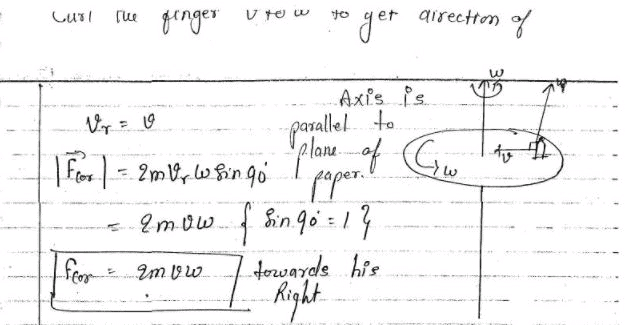 Curl the finger v to w to get direction of
w
Axis is
parallel to
plane of
paper.
v_r = v
|F_cor| = 2mv_r w sin 90°
= 2mvw { sin 90° = 1 }
F_cor = 2mvw towards his
Right
v
w